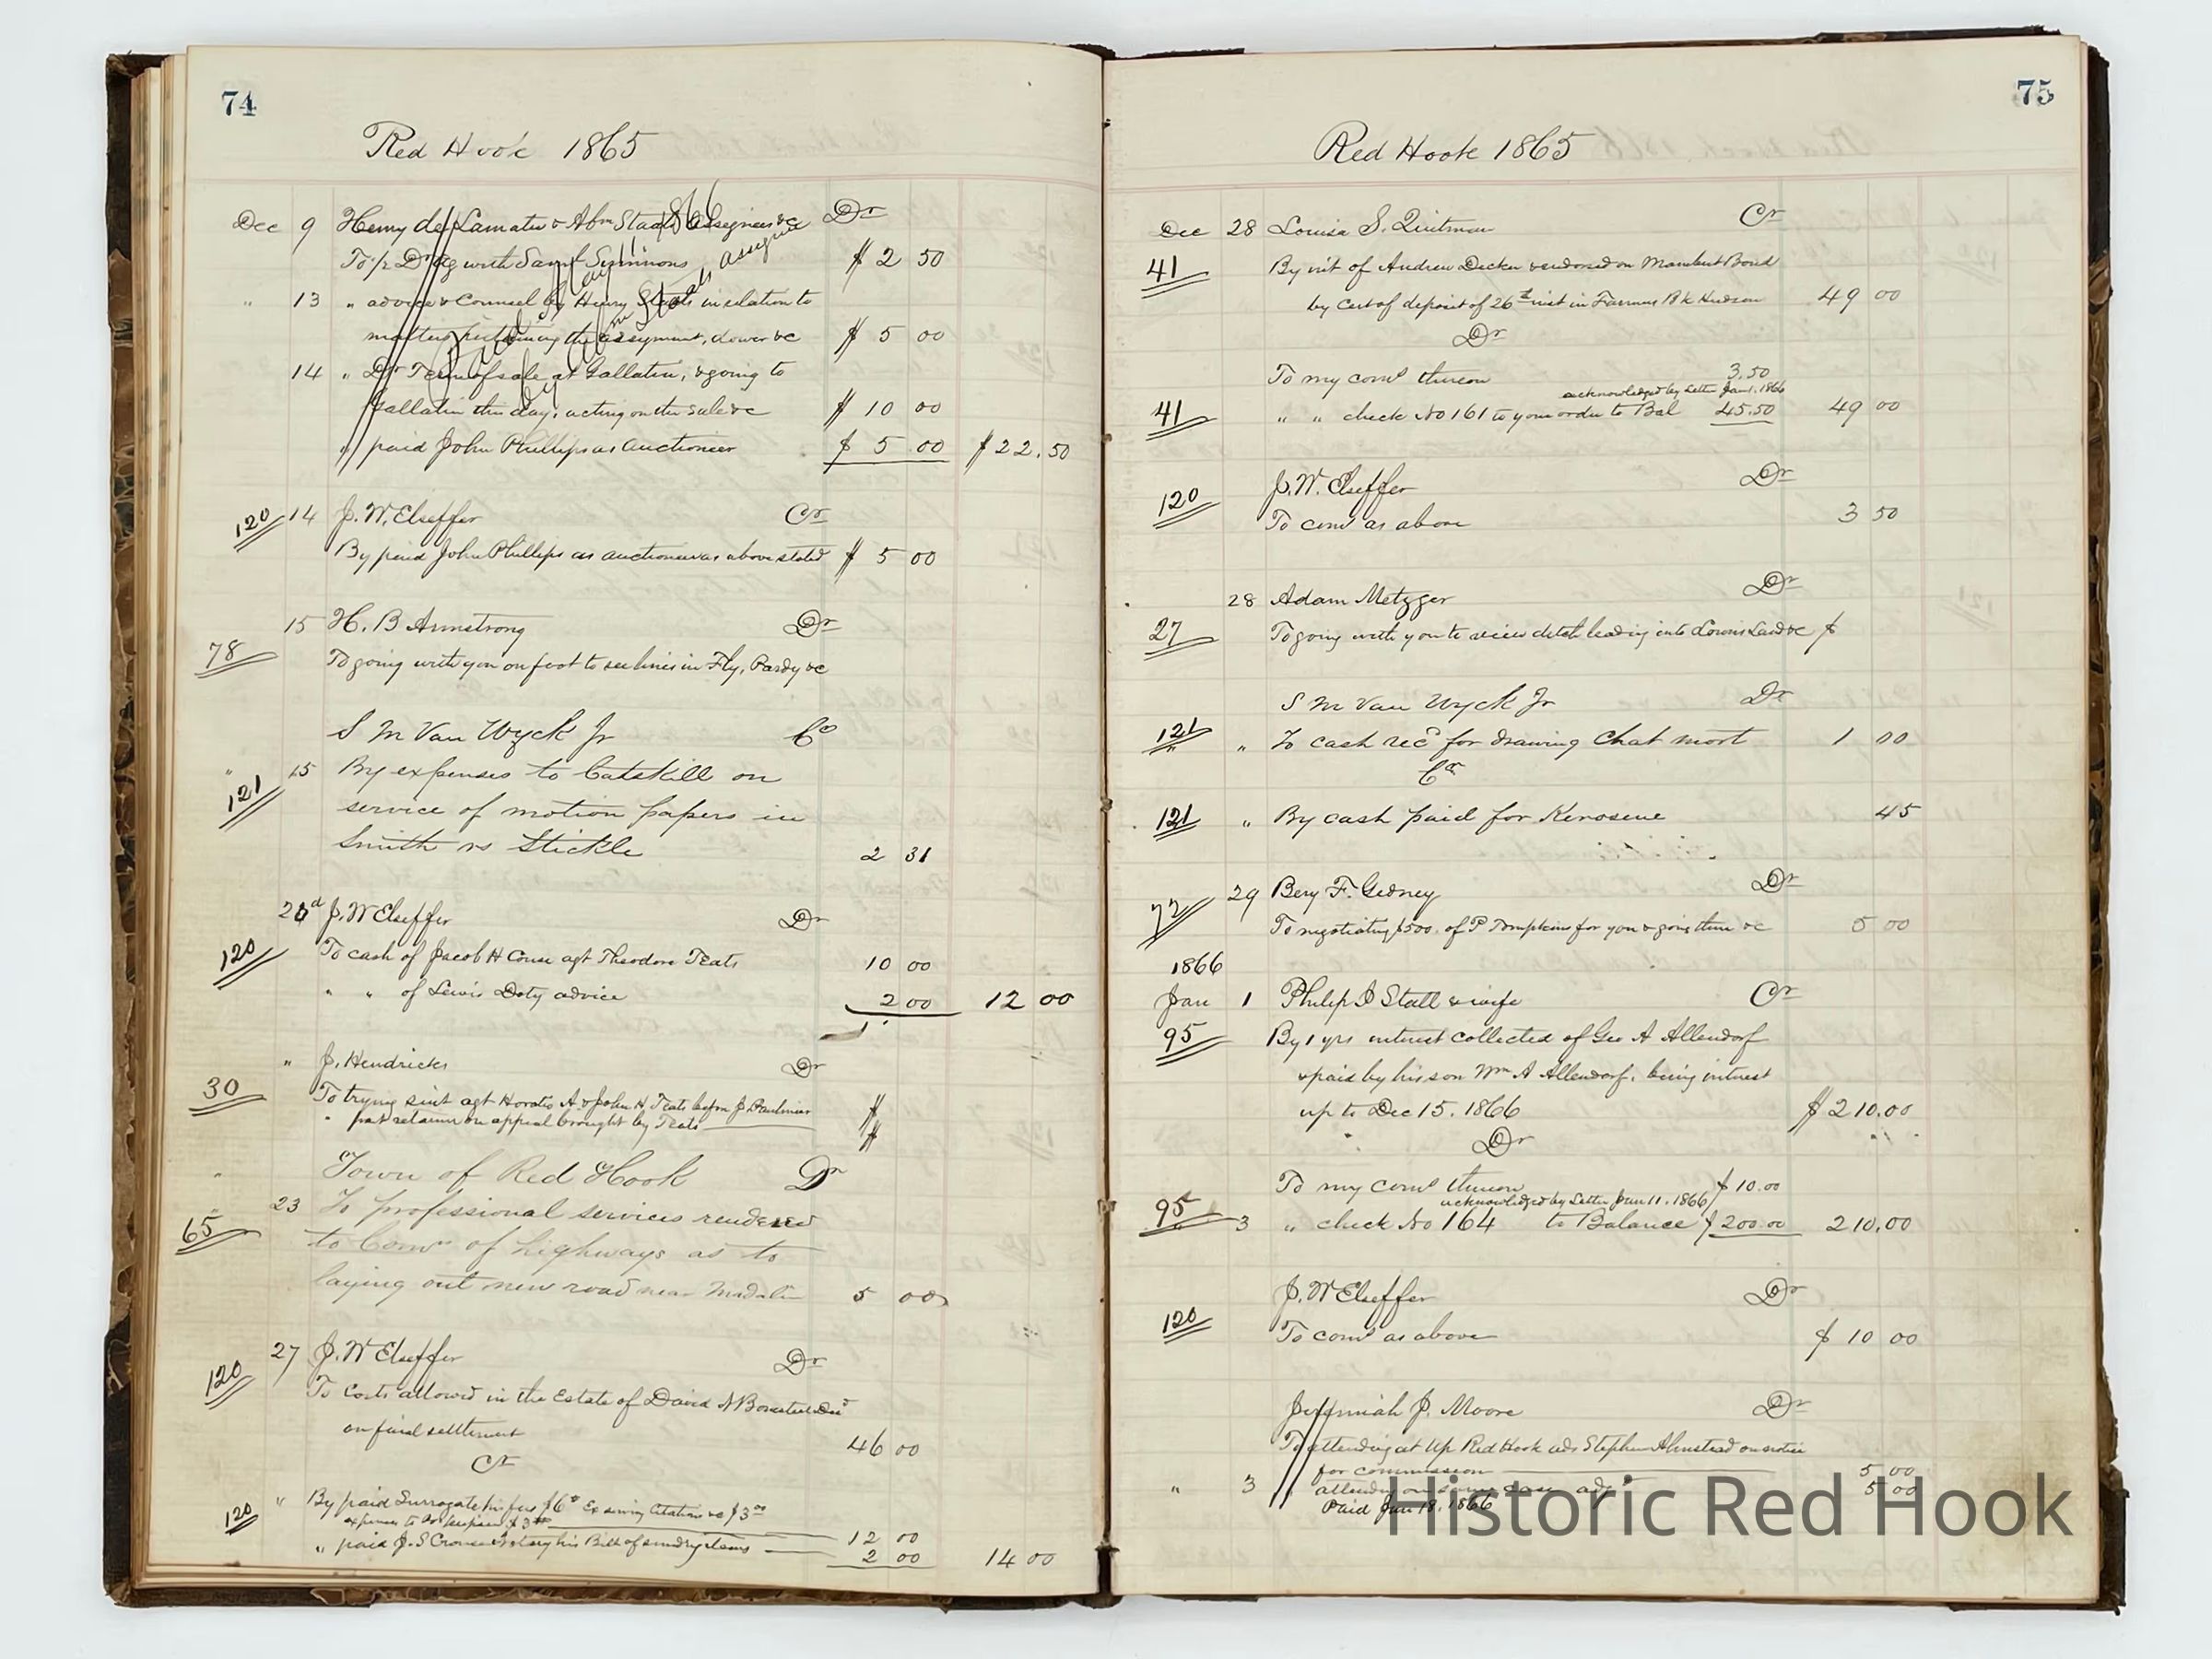 74
Red Hook 1865
Dec 9 Henry de Lamater & Abm Staats Assignees &c Dr
To 1/2 Dr ag with Saml Simmons $ 2 50
" 13 " advice & Counsel by Henry Staats in relation to
matters pertaining the assignment, dower &c $ 5 00
14 " Dr Terms of sale at Gallatin, & going to
Gallatin this day, acting on the sale &c $ 10 00
" paid John Phillips as Auctioneer $ 5 00 $ 22.50
Paid 1866
by Abm Staats assignee
120 14 J. W. Elseffer Cr
By paid John Phillips as auctioneer as above stated $ 5 00
15 H. B Armstrong Dr
78 To going with you on foot to see lines in Fly, Pardy &c
S M Van Wyck Jr Cr
" 15 By expenses to Catskill on
121 service of motion papers in
Smith vs Stickle 2 31
J. W Elseffer Dr
120 To cash of Jacob H Couse agt Theodore Teats 10 00
" " of Lewis Doty advice 2 00 12 00
" J. Hendricks Dr
30 To trying suit agt Horatio A. & John H. Teats before J $
" return on appeal brought by Teats $
Town of Red Hook Dr
23 To professional services rendered
65 to Comrs of highways as to
laying out new road near Madalin 5 00
27 J. W Elseffer Dr
120 To Costs allowed in the Estate of David N Decd
on final settlement 46 00
Cr
120 " By paid Surrogate his fees $6 Ex serving Citations &c $3
expenses to Po'keepsie $3 12 00
" paid J. S Crouse his Bill of sundry items 2 00 14 00
75
Red Hook 1865
Dec 28 Louisa S. Quitman Cr
41 By int of Andrew Decker endorsed on Mambert Bond
by Cert of deposit of 26th inst in Farmers Bk Hudson 49 00
Dr
To my coms thereon 3.50
acknowledged by Letter Jan 1. 1866
41 " " check No 161 to your order to Bal 45.50 49 00
J. W. Elseffer Dr
120 To coms as above 3 50
28 Adam Metzger Dr
27 To going with you to view ditch leading into Lown's Land &c $
S M Van Wyck Jr Dr
121 " To cash recd for drawing Chat mort 1 00
Cr
121 " By cash paid for Kerosene 45
29 Benj F. Gedney Dr
77 To negotiating $500. of P Tompkins for you & going there &c 5 00
1866
Jan 1 Philip D Stall & wife Cr
95 By 1 yrs interest collected of Geo A Allendorf
& paid by his son Wm A Allendorf. being interest
up to Dec 15. 1866 $ 210.00
Dr
To my coms thereon $ 10.00
acknowledged by Letter Jan 11. 1866
95 3 " check No 164 to Balance $ 200.00 210.00
J. W Elseffer Dr
120 To coms as above $ 10 00
Jeremiah J. Moore Dr
To attending at Up Red Hook ads Stephen Almstead on notice
for commission 5 00
" 3 attending on same case adj 5 00
Paid Jan 18. 1866
Historic Red Hook